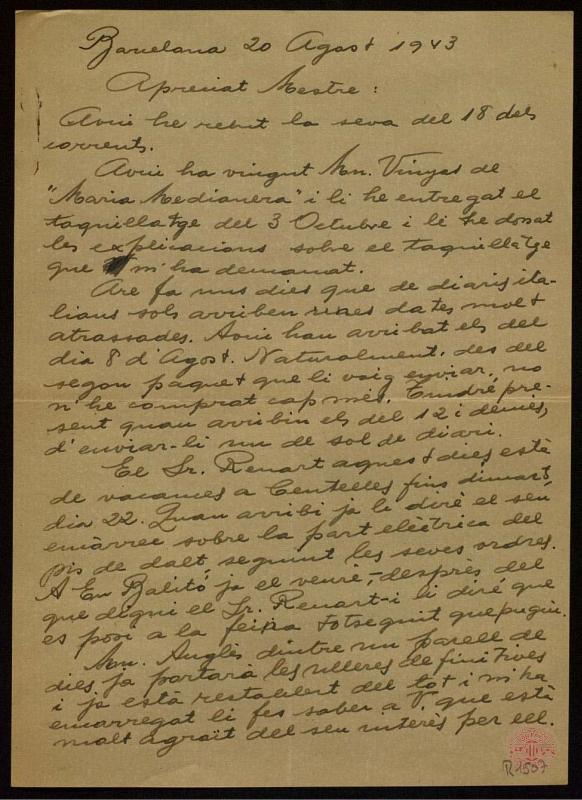 Barcelona 20 Agost 1943
Apreciat Mestre:
Avui he rebut la seva del 18 dels
corrents.
Avui ha vingut Mn. Vinyas de
"Maria Medianera" i li he entregat el
taquillatge del 3 Octubre i li he donat
les explicacions sobre el taquillatge
que m'ha demanat.
Are fa uns dies que de diaris ita-
lians sols arriben unes dates molt
atrassades. Avui han arribat els del
dia 8 d'Agost. Naturalment, des del
segon paquet que li vaig enviar, no
n'he comprat cap més. Tindré pre-
sent quan arribin els del 12 i demés,
d'enviar-li un de sol de diari.
El Sr. Renart aquest dies està
de vacances a Centelles fins dimarts,
dia 22. Quan arribi ja li diré el seu
encàrrec sobre la part elèctrica del
pis de dalt, seguint les seves ordres.
A En Balitó, ja el veuré, -després del
que digui el Sr. Renart- i li diré que
es posi a la feina totseguit que pugui.
Mn. Anglès dintre un parell de
dies ja portarà les ulleres definitives
i ja està restablert del tot i m'ha
encarregat li fes saber a V. que està
molt agraït del seu interès per ell.
R 1557